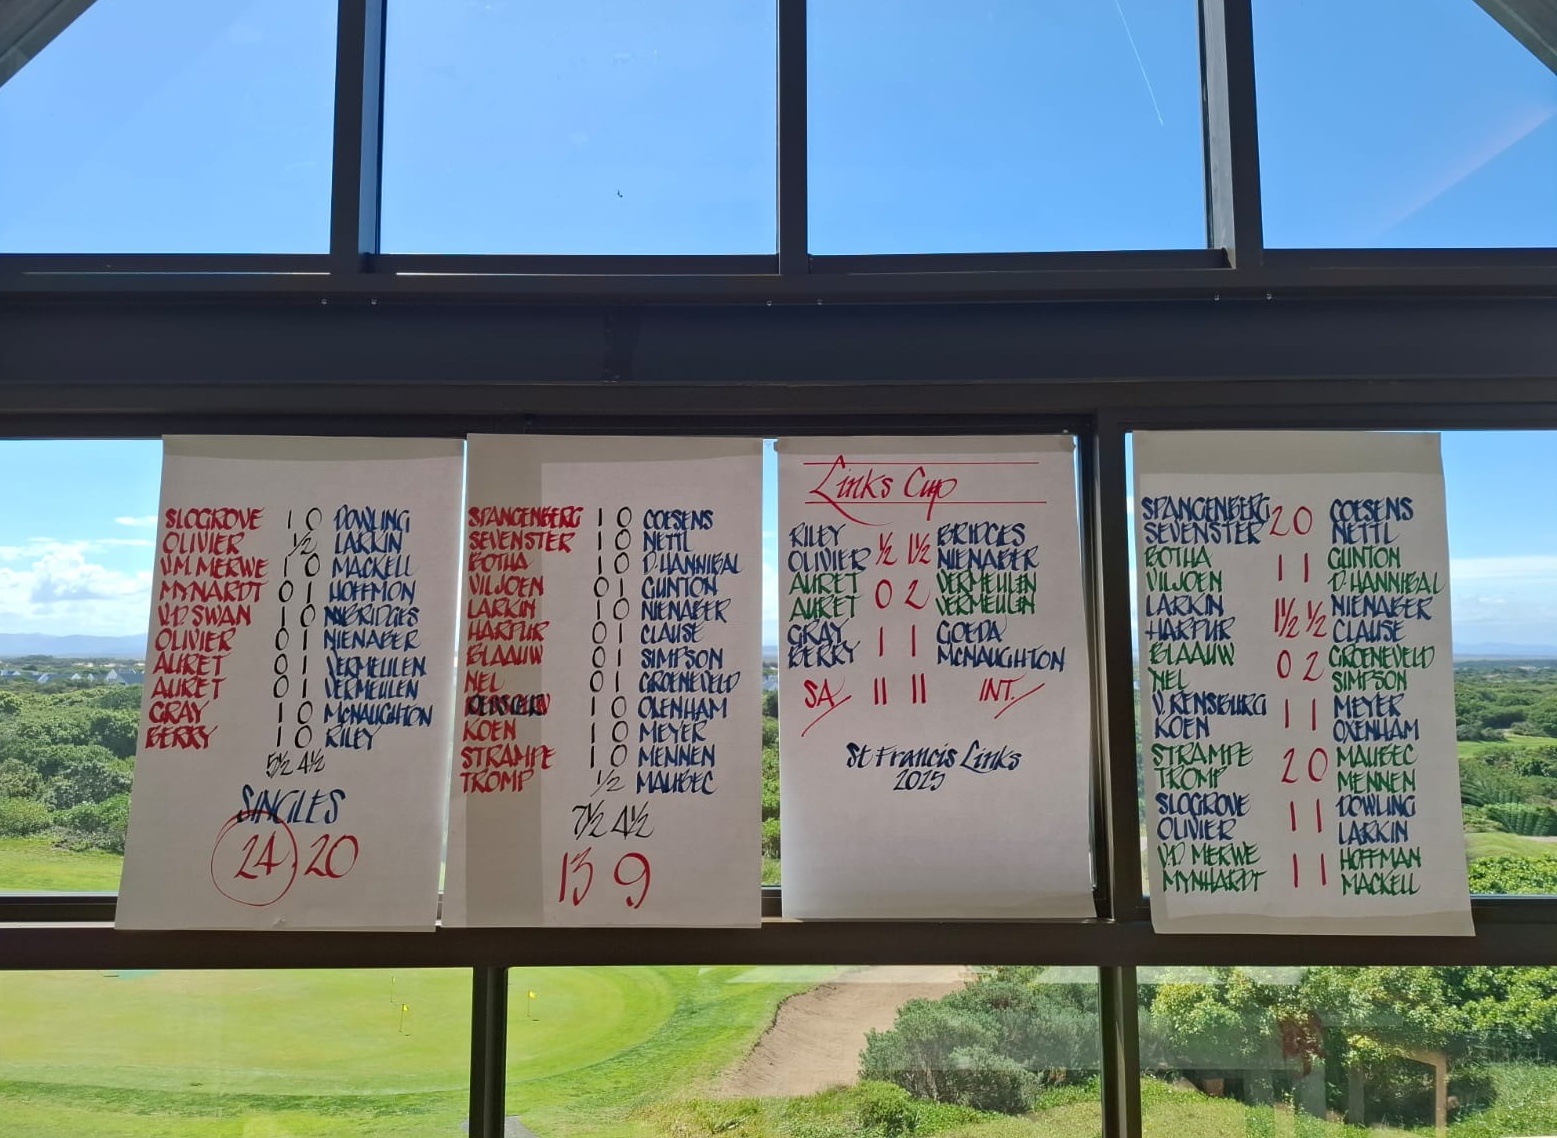 SLOGROVE 1 0 DOWLING
OLIVIER ½ LARKIN
V.M. MERWE 1 0 MACKELL
MYNARDT 0 1 HOFFMON
V.D SWAN 0 1 BRIDGES
OLIVIER 0 1 NIENABER
AURET 0 1 VERMEULEN
AURET 0 1 VERMEULEN
GRAY 1 0 MCNAUGHTON
BERRY 1 0 RILEY
5½ 4½
SINGLES
24 20
SPANGENBERG 1 0 COESENS
SEVENSTER 1 0 NETTL
BOTHA 1 0 D. HANNIBAL
VILJOEN 0 1 GUNTON
LARKIN 0 1 NIENABER
HARPUR 0 1 CLAUSE
BLAAUW 0 1 SIMPSON
NEL 0 1 GROENEVELD
1 0 OXENHAM
KOEN 1 0 MEYER
STRAMPE 1 0 MENNEN
TROMP ½ MALBEC
7½ 4½
13 9
Links Cup
RILEY BRIDGES
OLIVIER ½ 1½ NIENABER
AURET 0 2 VERMEULEN
AURET VERMEULEN
GRAY 1 1 GOEDA
BERRY MCNAUGHTON
SA 11 11 INT.
St Francis Links
2025
SPANGENBERG 2 0 COESENS
SEVENSTER NETTL
BOTHA 1 1 GUNTON
VILJOEN D. HANNIBAL
LARKIN 1½ ½ NIENABER
HARPUR CLAUSE
BLAAUW 0 2 GROENEVELD
NEL SIMPSON
V. RENSBURG 1 1 MEYER
KOEN OXENHAM
STRAMPE 2 0 MALBEC
TROMP MENNEN
SLOGROVE 1 1 DOWLING
OLIVIER LARKIN
V.D MERWE 1 1 HOFFMAN
MYNHARDT MACKELL